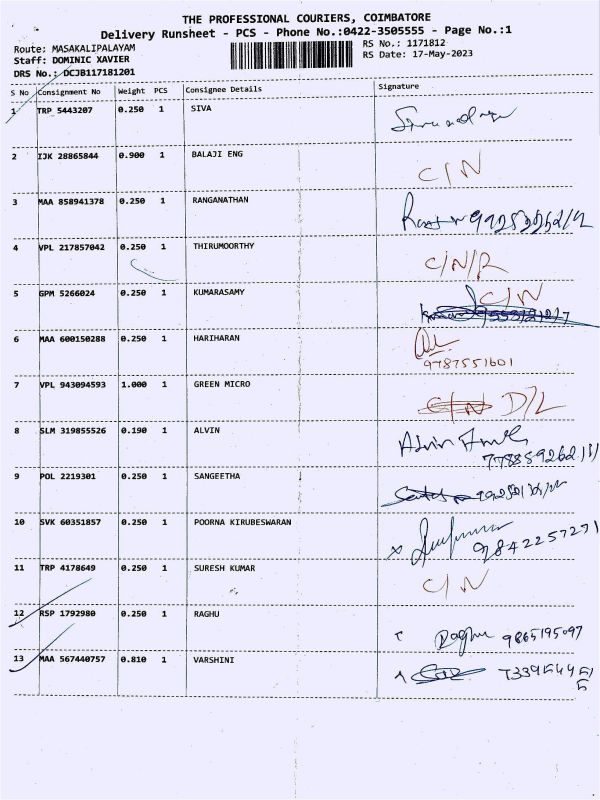 THE PROFESSIONAL COURIERS, COIMBATORE
Delivery Runsheet - PCS - Phone No.:0422-3505555 - Page No.:1
Route: MASAKALIPALAYAM
RS No.: 1171812
Staff: DOMINIC XAVIER
RS Date: 17-May-2023
DRS No.: DCJB117181201
S No Consignment No Weight PCS Consignee Details Signature
1 TRP 5443207 0.250 1 SIVA
2 IJK 28865844 0.900 1 BALAJI ENG C/N
3 MAA 858941378 0.250 1 RANGANATHAN
4 VPL 217857042 0.250 1 THIRUMOORTHY C/N/R
5 GPM 5266024 0.250 1 KUMARASAMY C/N
6 MAA 600150288 0.250 1 HARIHARAN
9787551601
7 VPL 943094593 1.000 1 GREEN MICRO C/N D/L
8 SLM 319855526 0.190 1 ALVIN Alvin
9 POL 2219301 0.250 1 SANGEETHA
10 SVK 60351857 0.250 1 POORNA KIRUBESWARAN x 9842257271
11 TRP 4178649 0.250 1 SURESH KUMAR C/N
12 RSP 1792980 0.250 1 RAGHU Raghu 9865195097
13 MAA 567440757 0.810 1 VARSHINI